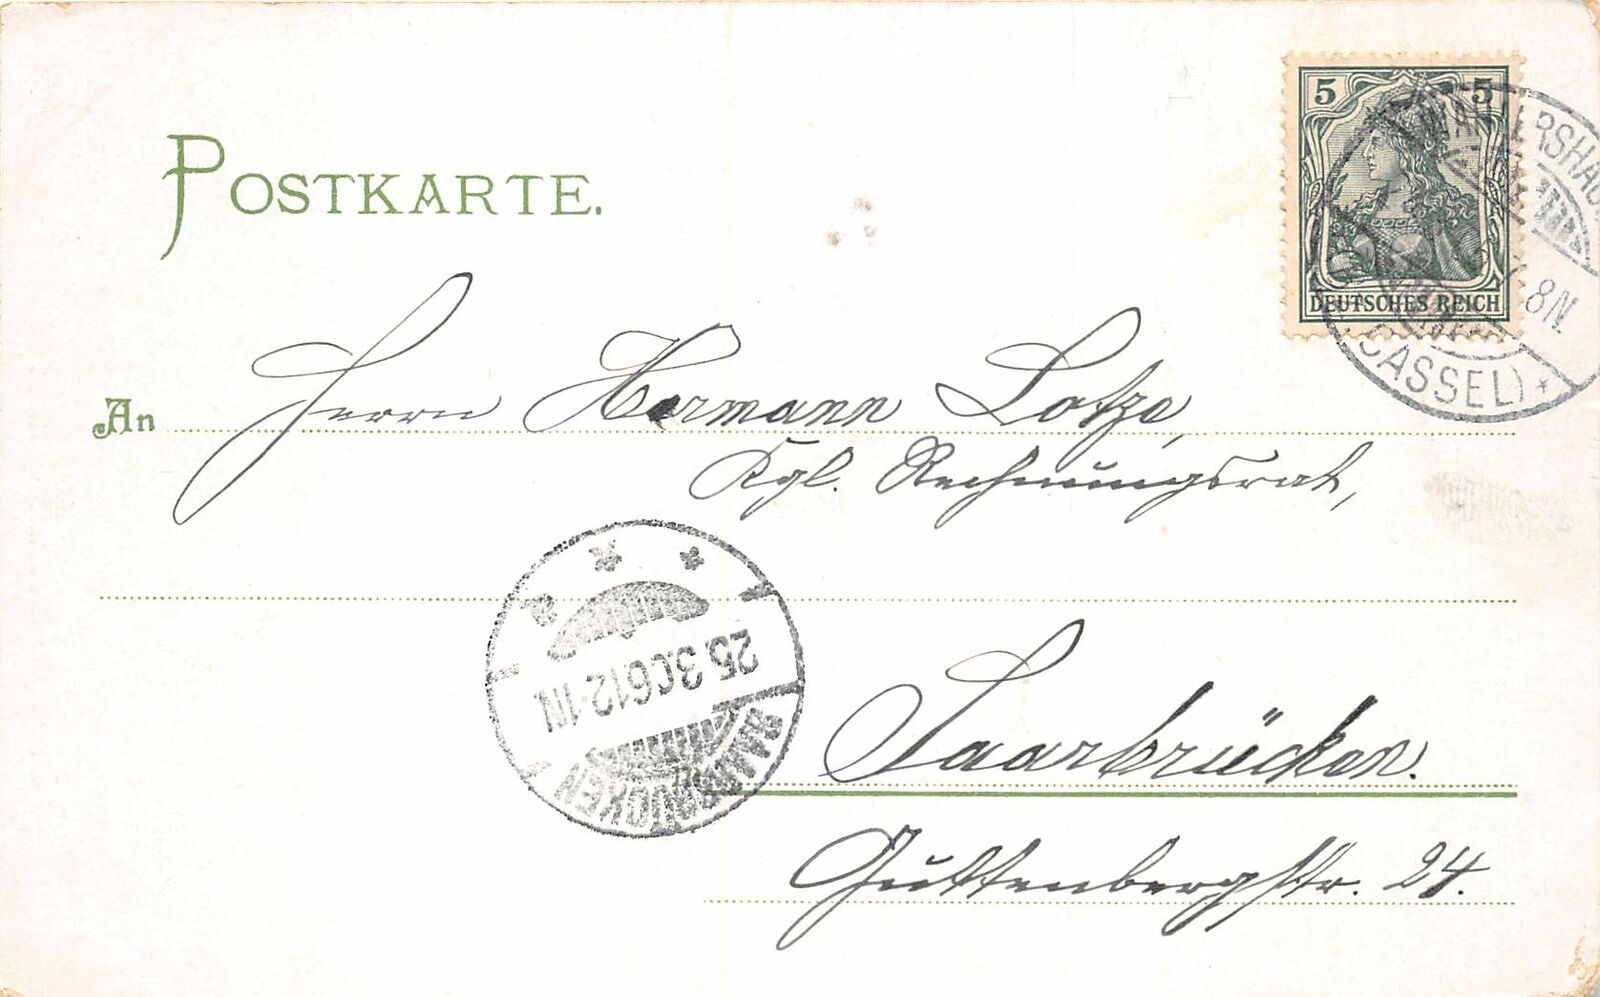 POSTKARTE.
5 5
DEUTSCHES REICH
ERSHAU
8N.
(CASSEL) *
An Herrn Hermann Lotze,
Kgl. Rechnungsrat,
25.3.06.12-1N
SAARBRÜCKEN
in Saarbrücken.
Guttenbergstr. 24.